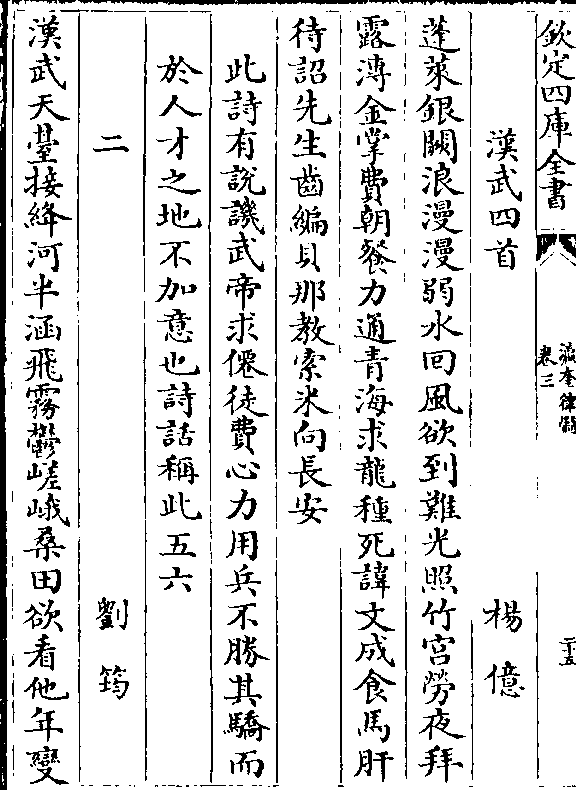 欽定四庫全書
瀛奎律髓
卷三
二十五
漢武四首　楊億
蓬萊銀闕浪漫漫弱水回風欲到難光照竹宮勞夜拜
露漙金掌費朝餐力通青海求龍種死諱文成食馬肝
待詔先生齒編貝那教索米向長安
此詩有說譏武帝求僊徒費心力用兵不勝其驕而
於人才之地不加意也詩話稱此五六
二　劉筠
漢武天臺接絳河半涵飛霧鬱嵯峨桑田欲看他年變